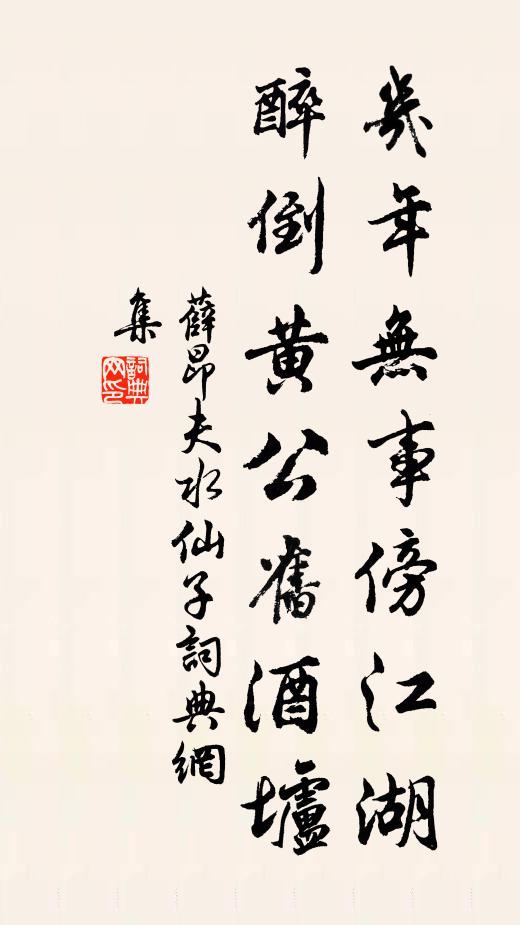 幾年無事傍江湖
醉倒黃公舊酒壚
薛昂夫水仙子詞典網
集
詞典
网印